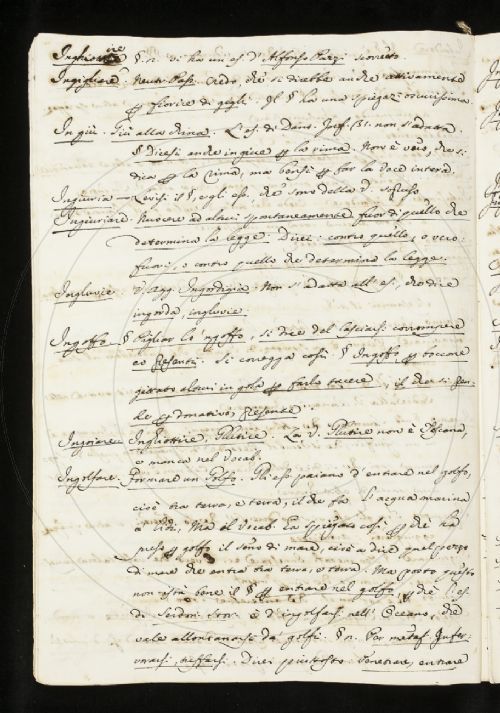 Inghiottire § n. vi ha un es. d'Alfonso Pazzi
Ingigliare. Neutr. Pass. Credo, che si direbbe anche attivamente
fiorire di gigli. Il § ha una spiegaz. oscurissima.
In giù. Giù alla china. L'es. di Dant. Inf. 31. non s'adatta.
§ Dicesi anche in giue per la rima. Non è vero, che si
dica per la rima, ma bensì per far la voce intera.
Ingiuria — Levisi il §, e gli es. che sono della
Ingiuriare. Nuocere ad alcuni spontaneamente fuor di quello che
determina la legge. Direi: contro quello, o vero
fuori, o contro quello che determina la legge.
Ingluvie. Ingordigia. Non s'adatta all'es., che dice
ingorda, ingluvie.
Ingoffo § Pigliar lo 'ngoffo, si dice del lasciarsi corrompere
co' presenti. Si corregga così § Ingoffo per boccone
gittato altrui in gola per farlo tacere, il che si
per donativo, presente.
Ingoiare Inghiottire, Glutire. La V. Glutire non è Toscana,
e manca nel Vocab.
Ingolfare. Formare un Golfo. Gli es. paiono d'entrare nel golfo,
cioè tra terra, e terra, il che fa l'acqua marina
a' lidi. Ma il Vocab. la spiegato così per che ha
preso per golfo il seno di mare, cioè a dire quel pezzo
di mare che entra tra terra, e terra. Ma posto questo
non istà bene il § per entrare nel golfo, per che l'es.
di è d'ingolfarsi nell'Oceano, che
vale allontanarsi da' golfi. § n. Per metaf. Infer-
vorarsi, Direi piuttosto: Penetrare, entrare